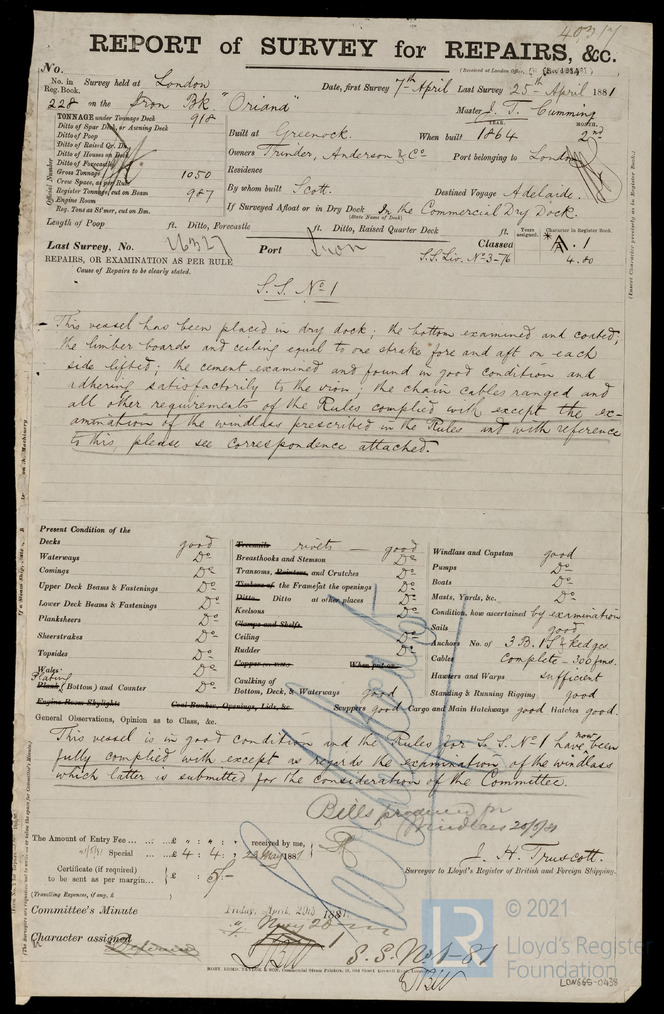 40317
REPORT of SURVEY for REPAIRS, &c.
No.
(Received at London Office,
No. in Reg. Book. Survey held at London Date, first Survey 7th April Last Survey 25th April 1881
228 on the Iron Bk. "Oriana" Master J. T. Cumming
TONNAGE under Tonnage Deck 918
Ditto of Spar Deck, or Awning Deck
Ditto of Poop
Ditto of Raised Qr. Dk.
Ditto of Houses on Deck
Ditto of Forecastle
Gross Tonnage 1050
Crew Space, as per Rule
Register Tonnage, cut on Beam 987
Engine Room
Reg. Tons as St'mer, cut on Bm.
Official Number
Built at Greenock. When built YEAR. 1864 MONTH. 2nd
Owners Trinder, Anderson & Co Port belonging to London
Residence
By whom built Scott. Destined Voyage Adelaide.
If Surveyed Afloat or in Dry Dock In the Commercial Dry Dock.
(State Name of Dock)
Length of Poop ft. Ditto, Forecastle ft. Ditto, Raised Quarter Deck ft.
Years assigned. Character in Register Book.
Last Survey, No. 16327 Port Iron Classed A. 1
S.S. Liv. No 3-76 4.80
REPAIRS, OR EXAMINATION AS PER RULE
Cause of Repairs to be clearly stated.
(Insert Character precisely as in Register Book.)
S.S. No 1
This vessel has been placed in dry dock; the bottom examined and coated;
the limber boards and ceiling equal to one strake fore and aft on each
side lifted; the cement examined and found in good condition and
adhering satisfactorily to the iron; the chain cables ranged and
all other requirements of the Rules complied with except the ex-
amination of the windlass prescribed in the Rules and with reference
to this, please see correspondence attached.
Present Condition of the
Decks good
Waterways Do
Comings Do
Upper Deck Beams & Fastenings Do
Lower Deck Beams & Fastenings Do
Planksheers Do
Sheerstrakes Do
Topsides Do
Wales Do
Plating
Plank (Bottom) and Counter Do
Engine Room Skylights Coal Bunker, Openings, Lids, &c.
Treenails rivets — good
Breasthooks and Stemson Do
Transoms, Pointers, and Crutches Do
Timbers of the Frames at the openings Do
Ditto Ditto at other places Do
Keelsons Do
Clamps and Shelfs
Ceiling Do
Rudder Do
Copper When put on
Caulking of
Bottom, Deck, & Waterways good
Scuppers good Cargo and Main Hatchways good Hatches good.
Windlass and Capstan good
Pumps Do
Boats Do
Masts, Yards, &c. Do
Condition, how ascertained by examination
Sails good
Anchors No. of 3 B. 1 S & kedges.
Cables Complete – 300 fms.
Hawsers and Warps sufficient
Standing & Running Rigging good
General Observations, Opinion as to Class, &c.
This vessel is in good condition and the Rules for S.S. No 1 have now been
fully complied with except as regards the examination of the windlass
which latter is submitted for the consideration of the Committee.
Bills produced for
Windlass 20/5/81
The Amount of Entry Fee ... £ " : " : " received by me,
Special ... £ 4 : 4 : 22 May 1881
Certificate (if required)
to be sent as per margin... £ : 5/-
(Travelling Expenses, if any, £ )
J. H. Truscott.
Surveyor to Lloyd's Register of British and Foreign Shipping.
Committee's Minute Friday, April, 29th 1881.
May 20
Character assigned Deferred 1
S.S. No. 1-81
© 2021
LR
Lloyd's Register
Foundation
LON665-0438